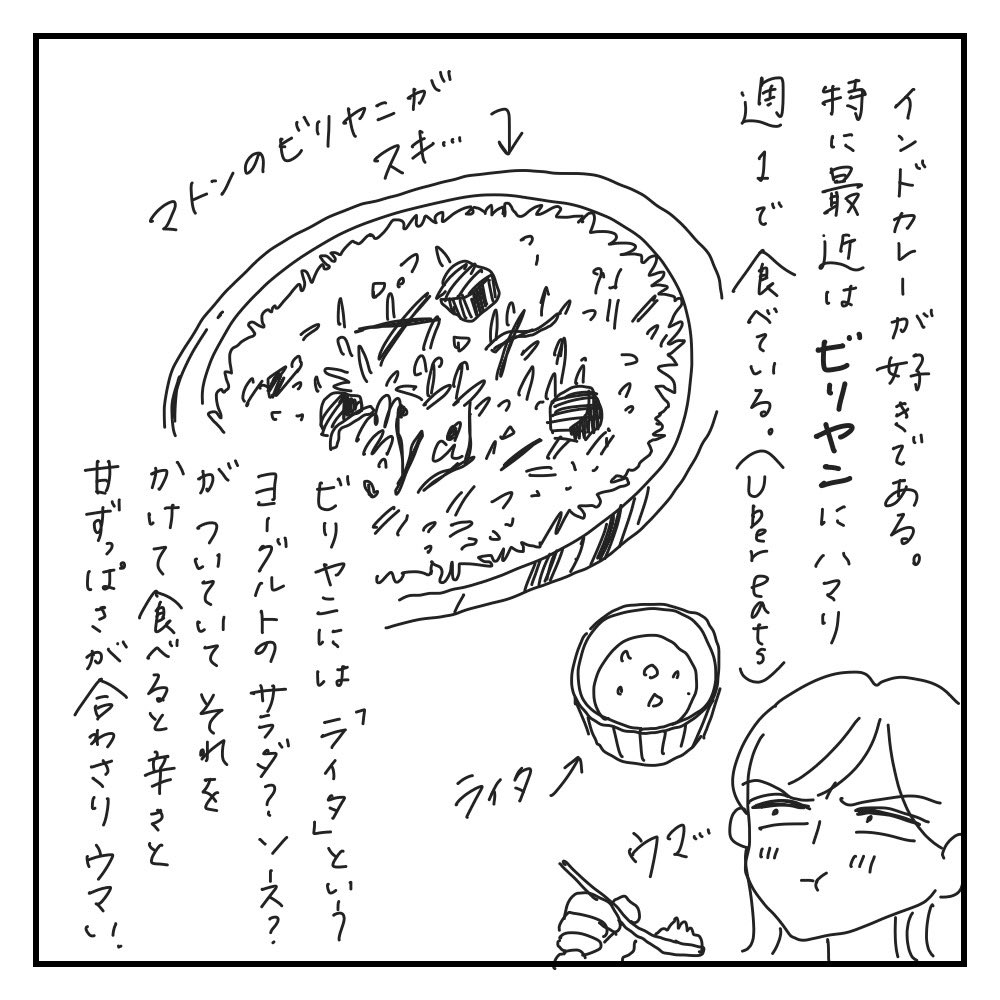 インドカレーが好きである。
特に最近はビリヤニにハマり
週1で食べている。(Uber eats)
マトンのビリヤニが
スキ…
ビリヤニには「ライタ」という
ヨーグルトのサラダ?ソース?
がついていてそれを
かけて食べると辛さと
甘ずっぱさが合わさりウマい.
ライタ
ウマ…